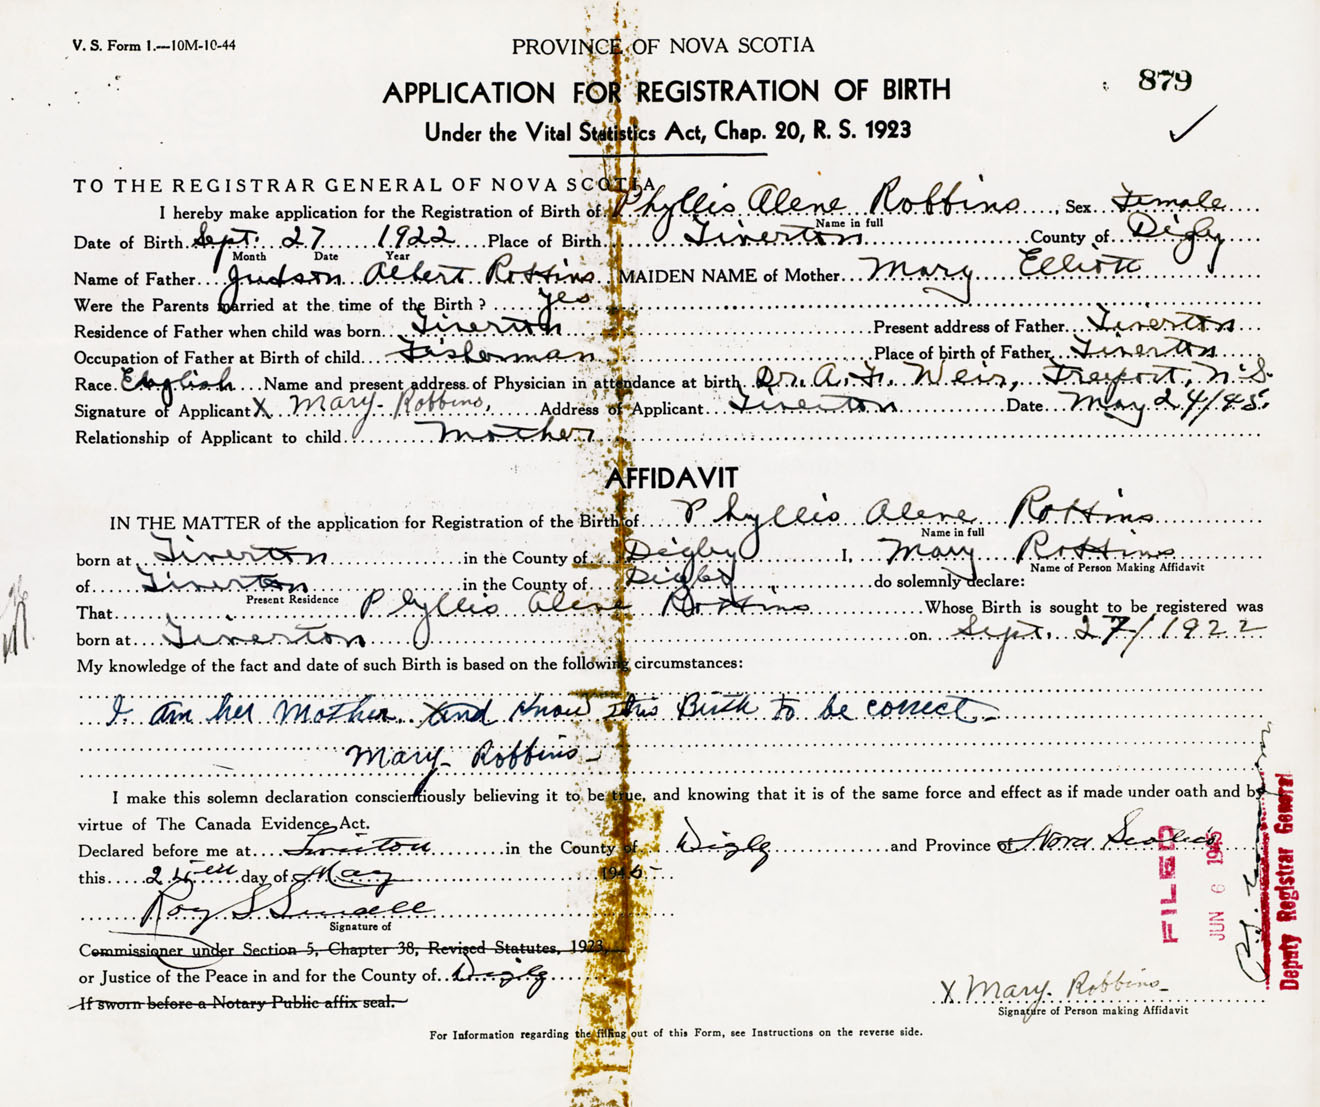 V. S. Form 1.—10M-10-44
PROVINCE OF NOVA SCOTIA
879
APPLICATION FOR REGISTRATION OF BIRTH
Under the Vital Statistics Act, Chap. 20, R. S. 1923
TO THE REGISTRAR GENERAL OF NOVA SCOTIA
I hereby make application for the Registration of Birth of Phyllis Alene Robbins, Sex Female
Name in full
Date of Birth Sept. 27 1922 Place of Birth Tiverton County of Digby
Month Date Year
Name of Father Judson Albert Robbins MAIDEN NAME of Mother Mary Elliott
Were the Parents married at the time of the Birth? yes
Residence of Father when child was born Tiverton Present address of Father Tiverton
Occupation of Father at Birth of child Fisherman Place of birth of Father Tiverton
Race English Name and present address of Physician in attendance at birth Dr. A. F. Weir, Freeport, N.S.
Signature of Applicant X Mary Robbins, Address of Applicant Tiverton Date May 24/45.
Relationship of Applicant to child Mother
AFFIDAVIT
IN THE MATTER of the application for Registration of the Birth of Phyllis Alene Robbins
Name in full
born at Tiverton in the County of Digby I, Mary Robbins
Name of Person Making Affidavit
of Tiverton in the County of Digby do solemnly declare:
Present Residence
That Phyllis Alene Robbins Whose Birth is sought to be registered was
born at Tiverton on Sept. 27/1922
My knowledge of the fact and date of such Birth is based on the following circumstances:
I am her Mother and know this Birth to be correct.
Mary Robbins
I make this solemn declaration conscientiously believing it to be true, and knowing that it is of the same force and effect as if made under oath and by
virtue of The Canada Evidence Act.
Declared before me at Tiverton in the County of Digby and Province of Nova Scotia
this 24th day of May 1945
Roy S
Signature of
Commissioner under Section 5, Chapter 38, Revised Statutes, 1923,
or Justice of the Peace in and for the County of Digby
If sworn before a Notary Public affix seal.
X Mary Robbins
Signature of Person making Affidavit
For Information regarding the filling out of this Form, see Instructions on the reverse side.
FILED
JUN 6 1945
Deputy Registrar General